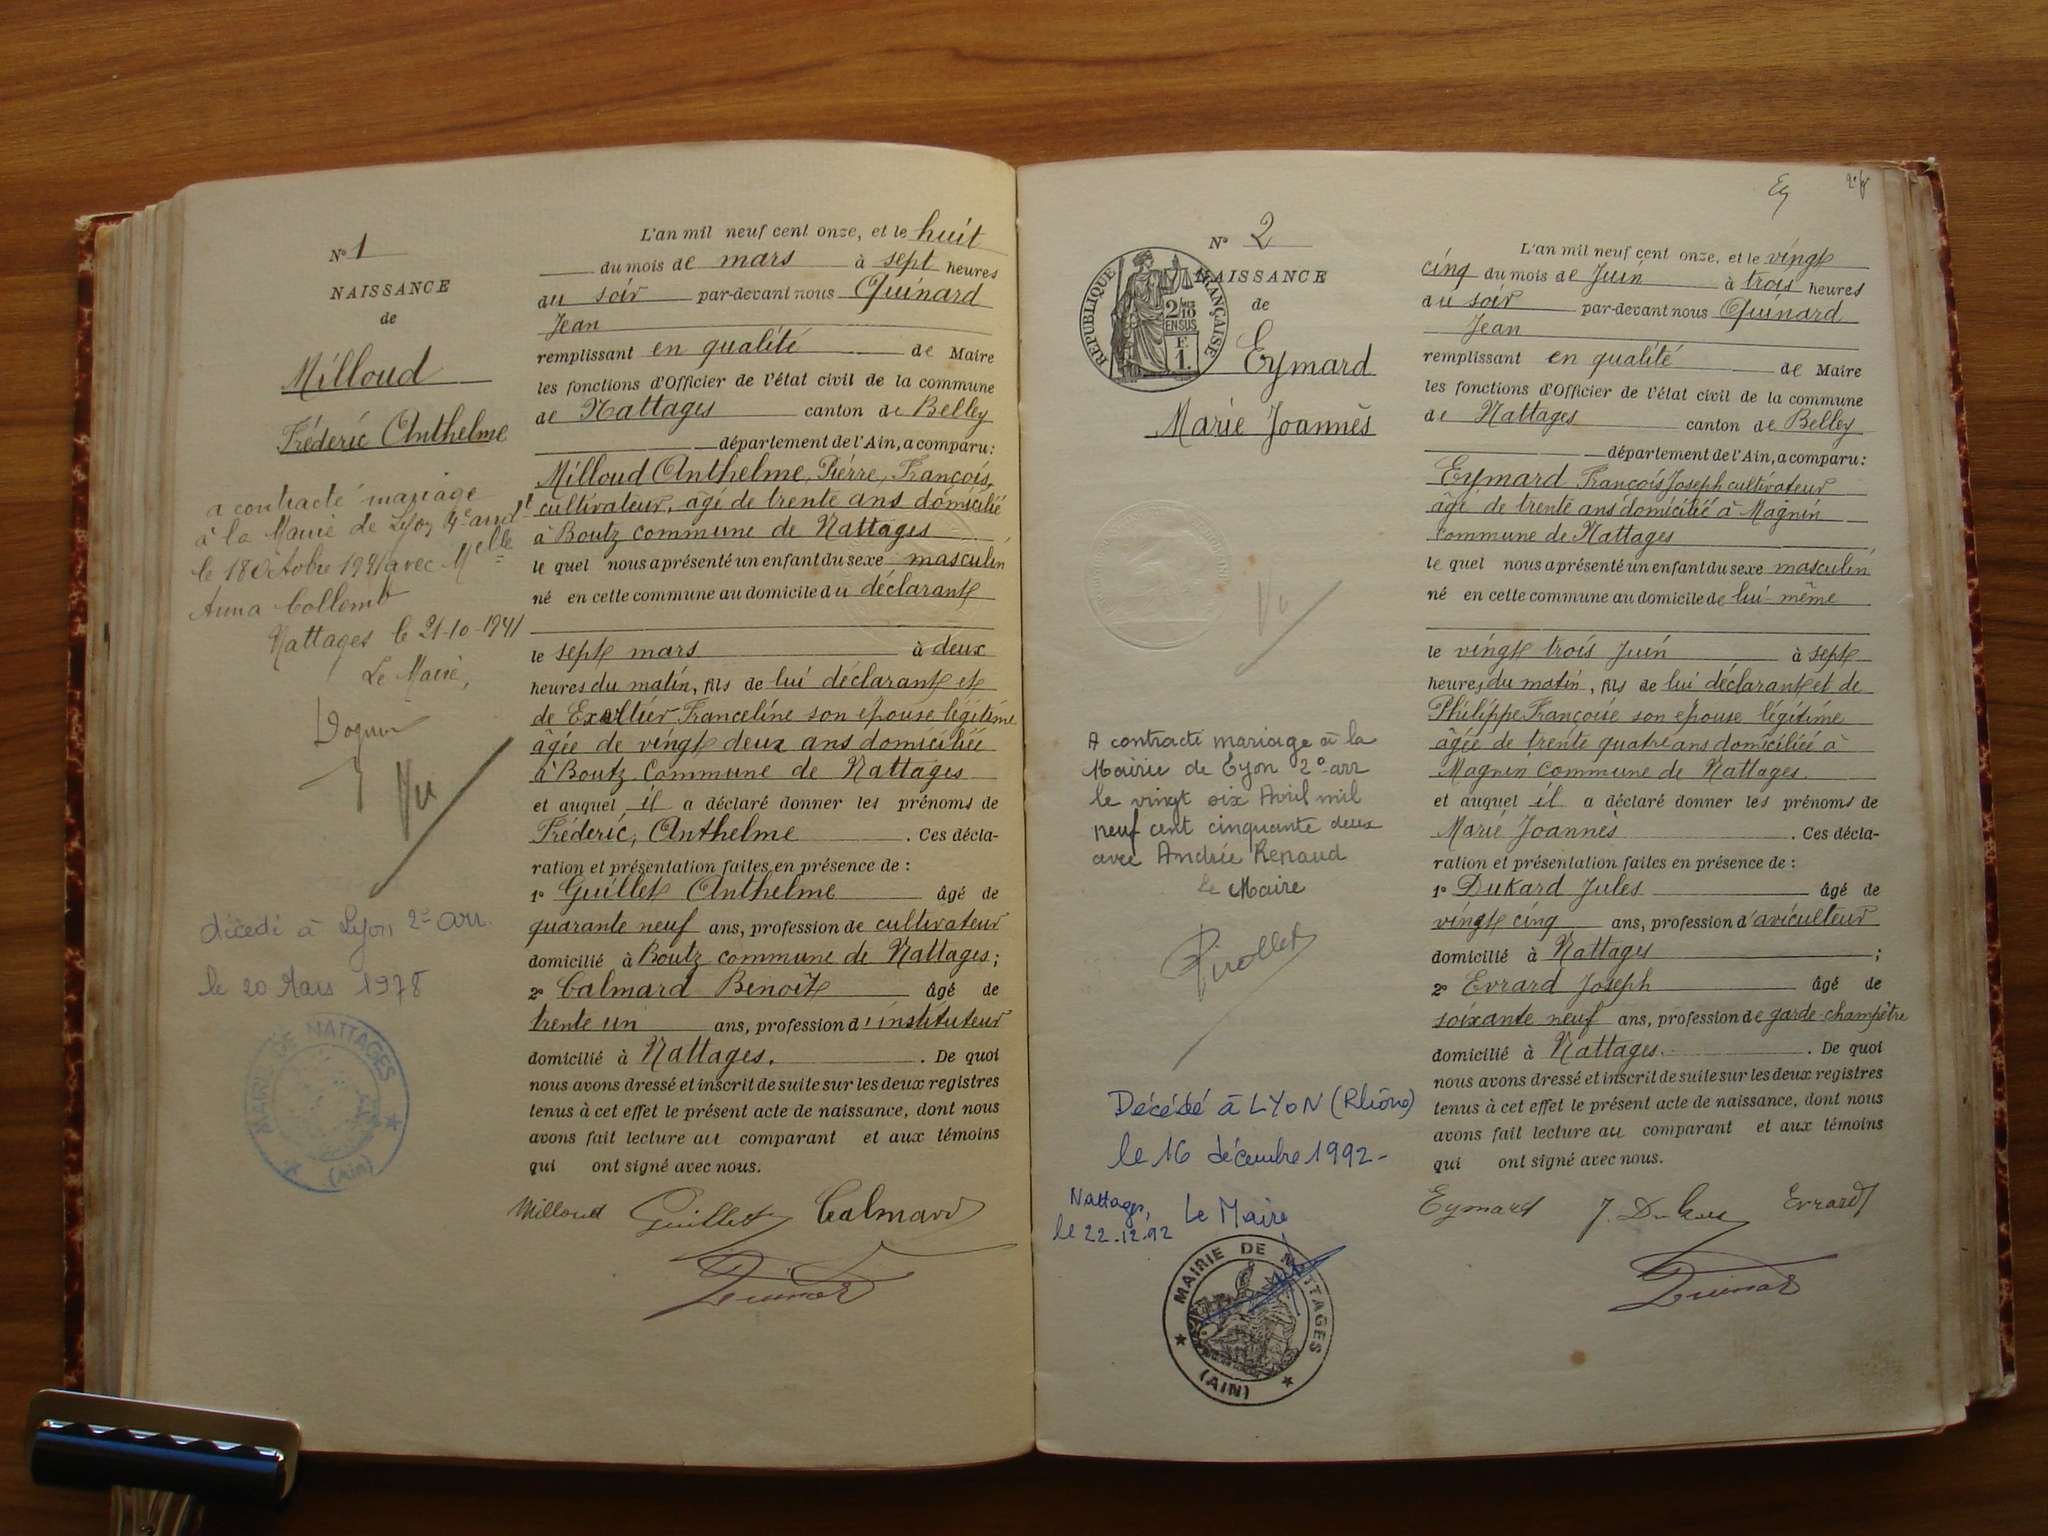 N° 1
NAISSANCE
de
Milloud
Fréderic Anthelme
a contracté mariage
à la Mairie de Lyon 4e arrdt
le 18 Octobre 1941 avec Melle
Anna Collomb
Nattages le 21-10-1941
Le Maire,
Vu
décédé à Lyon 2e arr.
le 20 Mars 1978
MAIRIE DE NATTAGES
(Ain)
L'an mil neuf cent onze, et le huit
du mois de mars à sept heures
du soir par-devant nous Quinard
Jean
remplissant en qualité de Maire
les fonctions d'Officier de l'état civil de la commune
de Nattages canton de Belley
département de l'Ain, a comparu:
Milloud Anthelme, Pierre, François,
cultivateur, âgé de trente ans domicilié
à Boutz commune de Nattages
le quel nous a présenté un enfant du sexe masculin
né en cette commune au domicile du déclarant
le sept mars à deux
heures du matin, fils de lui déclarant et
de Franceline son épouse légitime
âgée de vingt deux ans domiciliée
à Boutz Commune de Nattages
et auquel il a déclaré donner les prénoms de
Fréderic, Anthelme. Ces décla-
ration et présentation faites en présence de :
1° Guillet Anthelme âgé de
quarante neuf ans, profession de cultivateur
domicilié à Boutz commune de Nattages;
2° Calmard Benoît âgé de
trente un ans, profession d'instituteur
domicilié à Nattages. De quoi
nous avons dressé et inscrit de suite sur les deux registres
tenus à cet effet le présent acte de naissance, dont nous
avons fait lecture au comparant et aux témoins
qui ont signé avec nous.
Milloud Guillet Calmard
Quinard
Ey
N° 2
NAISSANCE
de
RÉPUBLIQUE FRANÇAISE
2/10
EN SUS
F
1.
Eymard
Marie Joannès
Vu
A contracté mariage à la
Mairie de Lyon 2e arr
le vingt six Avril mil
neuf cent cinquante deux
avec Andrée Renaud
le Maire
Décédé à LYON (Rhône)
le 16 décembre 1992 -
Nattages,
le 22.12.92
Le Maire
MAIRIE DE NATTAGES
(AIN)
L'an mil neuf cent onze, et le vingt
cinq du mois de Juin à trois heures
du soir par-devant nous Quinard
Jean
remplissant en qualité de Maire
les fonctions d'Officier de l'état civil de la commune
de Nattages canton de Belley
département de l'Ain, a comparu:
Eymard François Joseph cultivateur
âgé de trente ans domicilié à Magnin
commune de Nattages
le quel nous a présenté un enfant du sexe masculin
né en cette commune au domicile de lui-même
le vingt trois Juin à sept
heures du matin, fils de lui déclarant et de
Philippe Françoise son épouse légitime
âgée de trente quatre ans domiciliée à
Magnin commune de Nattages.
et auquel il a déclaré donner les prénoms de
Marie Joannès. Ces décla-
ration et présentation faites en présence de :
1° Dukard Jules âgé de
vingt cinq ans, profession d'aviculteur
domicilié à Nattages ;
2° Evrard Joseph âgé de
soixante neuf ans, profession de garde-champêtre
domicilié à Nattages. De quoi
nous avons dressé et inscrit de suite sur les deux registres
tenus à cet effet le présent acte de naissance, dont nous
avons fait lecture au comparant et aux témoins
qui ont signé avec nous.
Eymard Evrard
Quinard